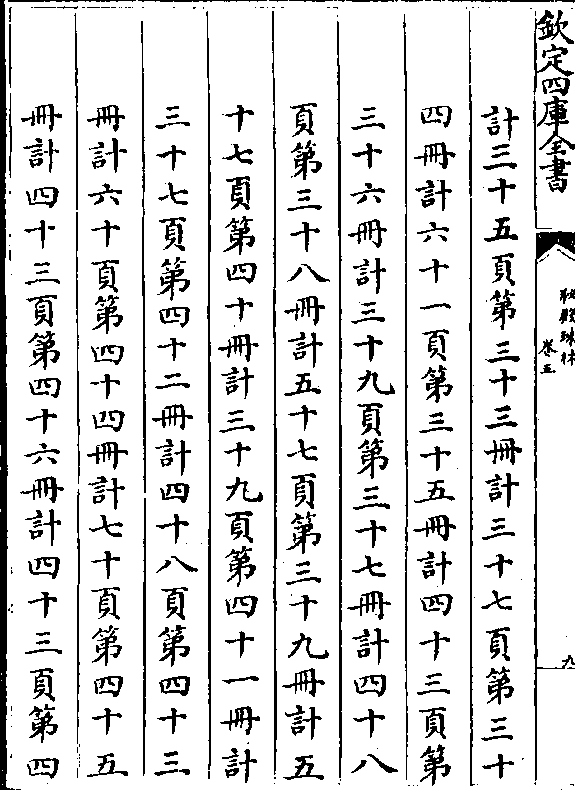 欽定四庫全書
秘殿珠林
卷五
九
計三十五頁第三十三冊計三十七頁第三十
四冊計六十一頁第三十五冊計四十三頁第
三十六冊計三十九頁第三十七冊計四十八
頁第三十八冊計五十七頁第三十九冊計五
十七頁第四十冊計三十九頁第四十一冊計
三十七頁第四十二冊計四十八頁第四十三
冊計六十頁第四十四冊計七十頁第四十五
冊計四十三頁第四十六冊計四十三頁第四